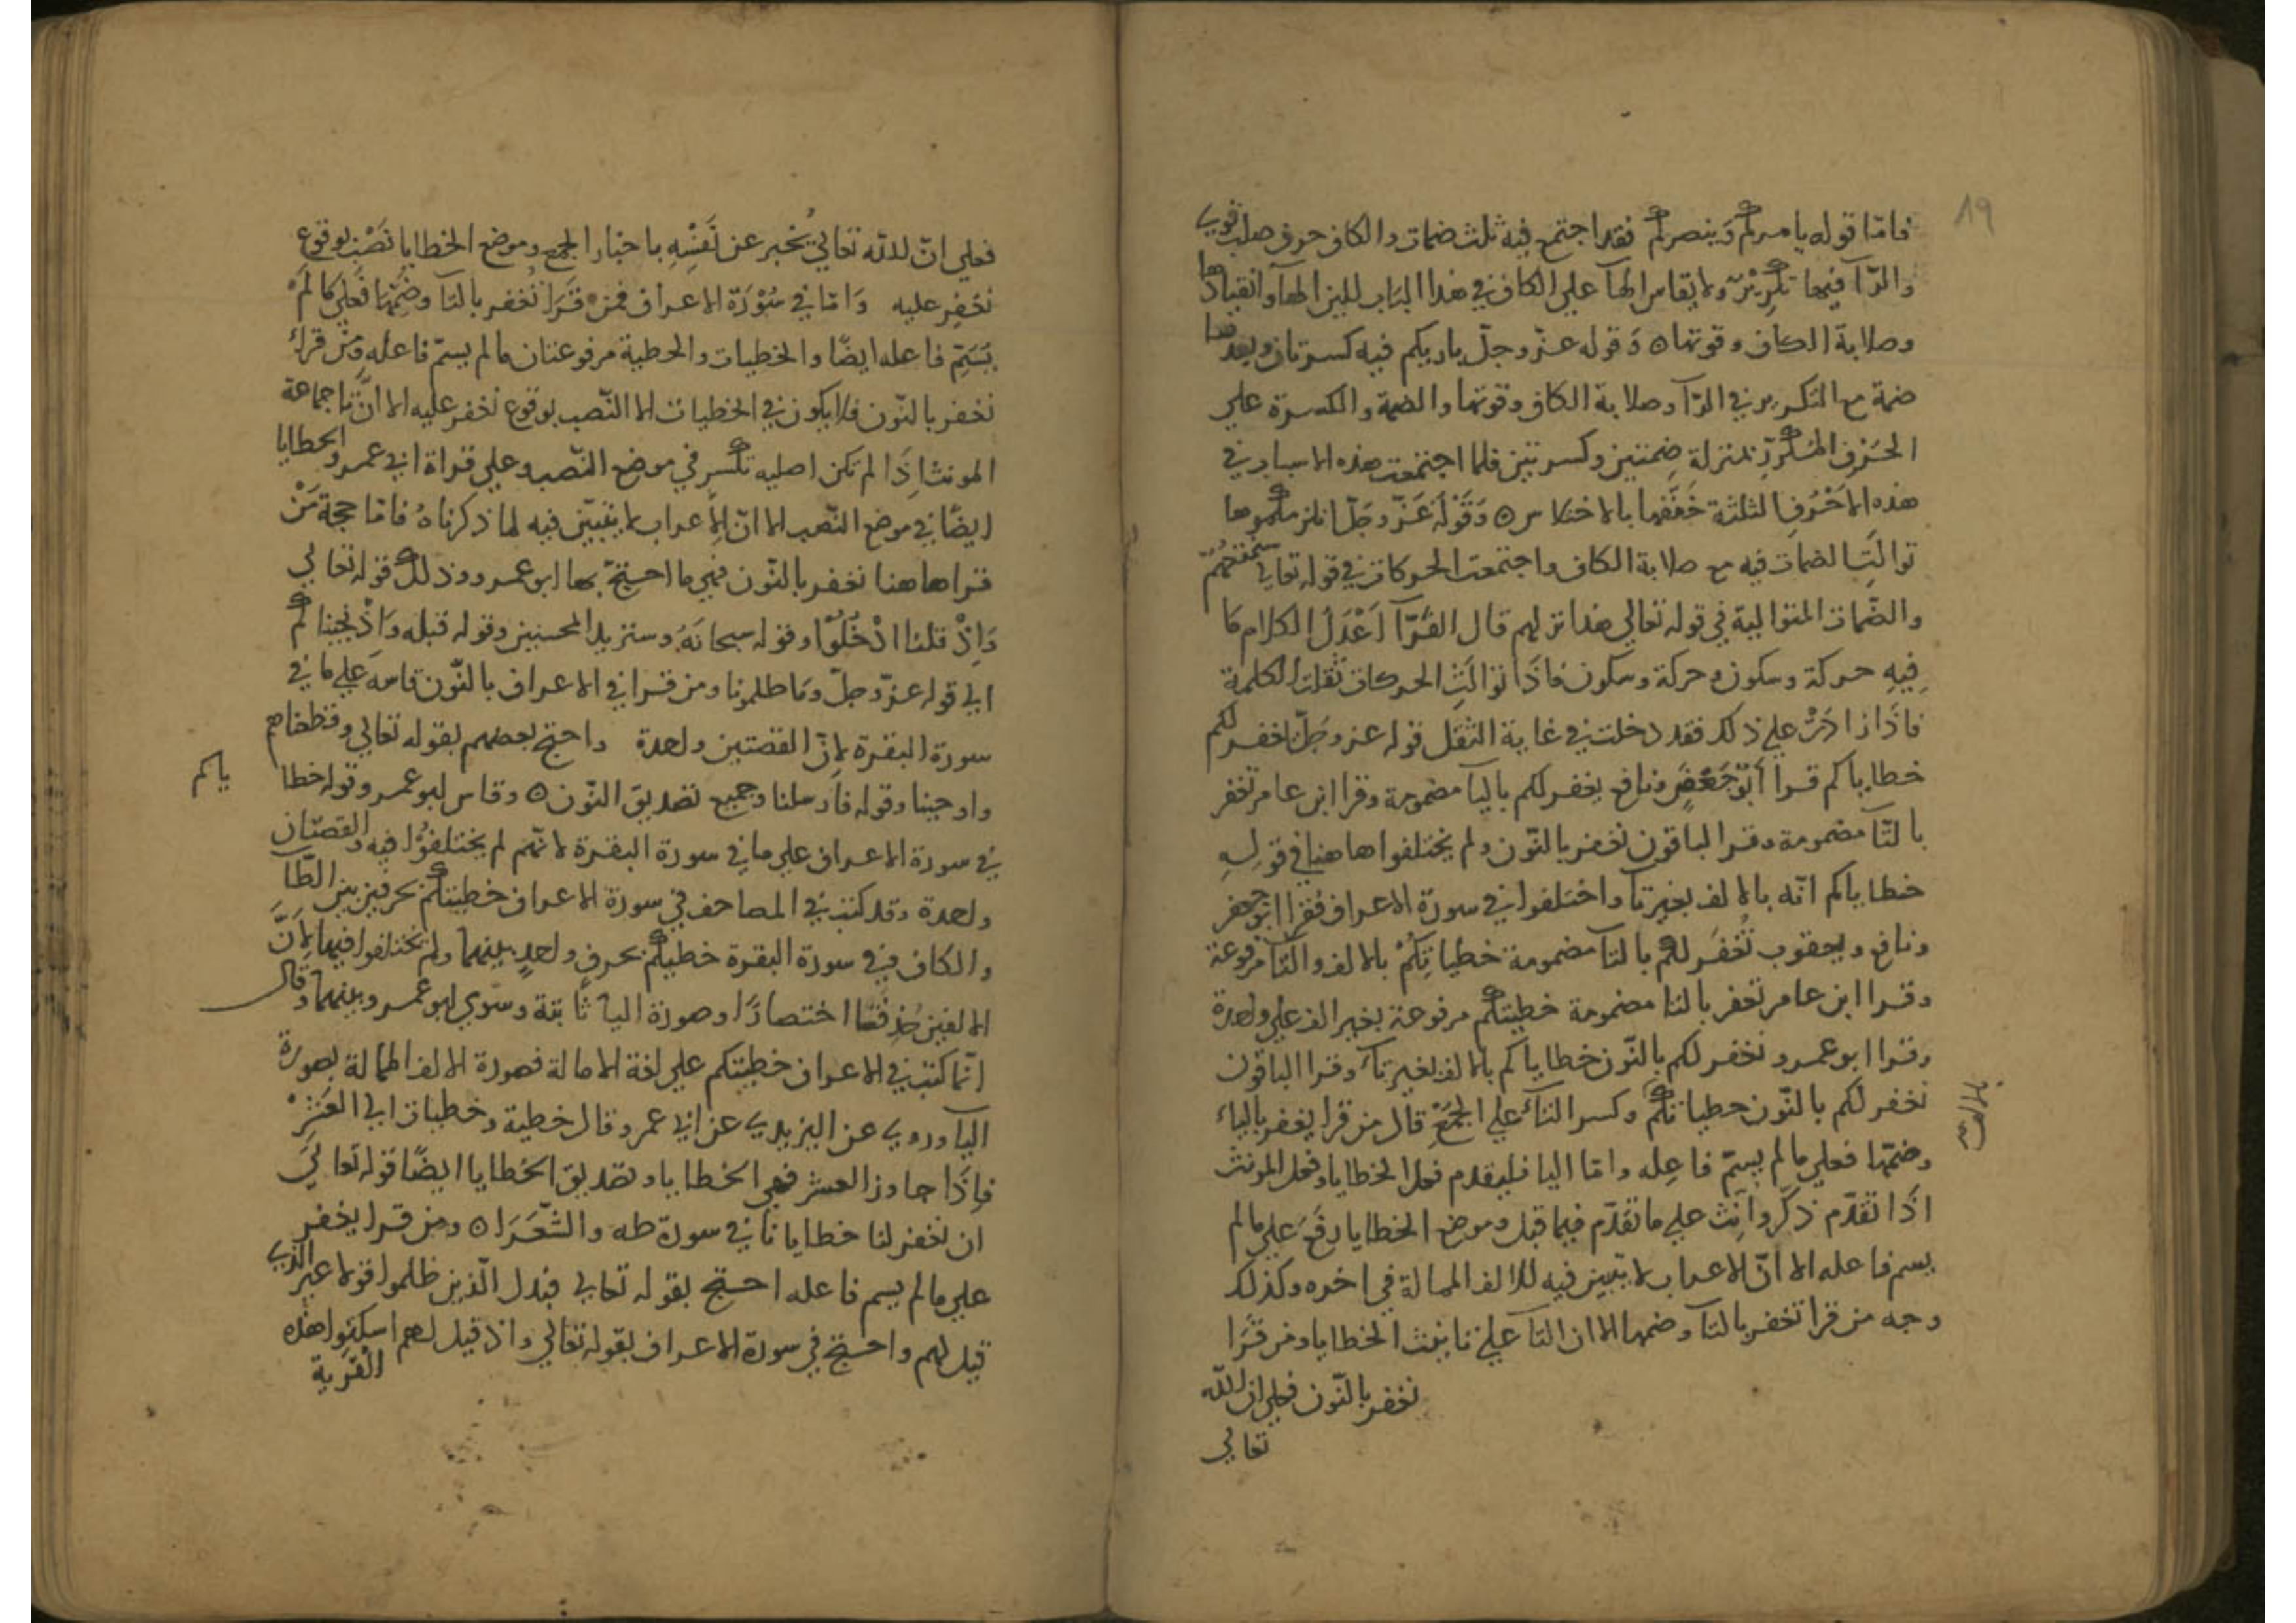 ١٩
فامّا قوله يامركم وينصركم فقد اجتمع فيه ثلث ضمات والكاف حرف صلب قوي
والرّآ فيها تكرير ولا يقاس الهآ علي الكاف في هذا الباب للين الهآ وانقيادها
وصلابة الكاف وقوتها ه وقوله عزّ وجلّ بارىكم فيه كسرتان وبعدهما
ضمة مع التكرير في الرّآ وصلابة الكاف وقوتها والضمة والكسرة علي
الحَرْفِ المكرّر بمنزلة ضمتين وكسرتين فلما اجتمعت هذه الاسباب في
هذه الاَحْرُفِ الثلثة خَفّفها بالاختلاس ه وَقَوْلُه عَزّ وجلّ انلزمكموها
توالَتِ الضمات فيه مع صلابة الكاف واجتمعت الحركات في قوله تعالي
والضّمات المتوالية في قوله تعالي هذا نزلهم قال الفَرّآ اَعْدَلُ الكلام ما
فِيهِ حركة وسكون وحركة وسكون فاذَا توالَتِ الحركات ثقلت الكلمة
فاذَا زادَتْ علي ذلك فقد دخلت في غاية الثقل قوله عز وجَلّ نغفر لكم
خطاياكم قرا اَبُو جَعْفَرٍ ونافع يغفر لكم باليآ مضمومة وقرا ابن عامر تغفر
بالتّآ مضمومة وقرا الباقون نغفر بالنّون ولم يختلفوا هاهنا في قولِهِ
خطاياكم انّه بالالف بغير تآ واختلفوا في سورة الاعراف فقرا ابو جعفر
ونافع ويعقوب تُغْفَر لكم بالتآ مضمومة خطياتُكُمْ بالالف والتّآ مرفوعة
وقرا ابن عامر تغفر بالتا مضمومة خطيتكم مرفوعة بغير الف علي واحدة
وقرا ابو عمرو نغفر لكم بالنّون خطاياكم بالالف بغير تآ وقرا الباقون
نغفر لكم بالنّون خطياتكم وكسر التآء علي الجمْعِ قال من قرا يغفر بالياء
وضمّها فعلي ما لم يسمّ فاعِله وامّا اليا فليقدم فعل الخطايا وفعل المونث
اذَا تقدّم ذكّر واَنّث علي ما تقدّم فيما قبل وموضع الخطايا رفع علي ما لم
يسم فاعله الا انّ الاعراب لا يتبين فيه للالف الممالة في اخره وكذلك
وجه من قرا تغفر بالتآ وضمها الا ان التآ علي تانيث الخطايا ومن قَرَا
نغفر بالنّون فعلي ان اللّه
تعالي
فعلي انّ للّه تعالي يُخبر عن نَفْسِهِ باخبار الجمع وموضع الخطايا نَصْب بوقوع
نغفر عليه وَامّا في سُوْرَة الاعراف فمن قَرَا تُغفر بالتآ وضمّها فعلي ما لم
يسَمّ فاعله ايضًا والخطيات والخطية مرفوعتان ما لم يسمّ فاعله ومَنْ قراء
نغفر بالنّون فلا يكون في الخطيات الا النّصب بوقوع نغفر عليه الا انّ تا جماعة
المونث اذَا لم تكن اصليه تكسر في موضع النّصب وعلي قراة ابي عمرو والخطايا
ايضًا في موضع النّصب الا انّ الاِعراب لا يتبيّن فيه لما ذكرناهُ فامّا حجة مَنْ
قراها هنا نغفر بالنّون فهي ما احتجّ بها ابو عمرو وذلك قوله تعالي
وَاِذْ قلنا ادْخُلُوْا وقوله سبحانَهُ وسنزيد المحسنين وقوله قبله وَاذْ نجيناكم
الي قوله عزّ وجلّ وما ظلمونا ومن قرا في الاعراف بالنّون قاسه علي ما في
سورة البقرة لاِنّ القصتين واحدة واحتج بعضهم بقوله تعالي وقطعناهم
واوحينا وقوله فاَرسلنا وجميع تصديق النّون ه وقاس ابو عمرو وقوله خطا ياكم
في سورة الاعراف علي ما في سورة البقرة لانّهم لم يختلفوْا فيه والقصّتان
واحدة وقد كتبت في المصاحف في سورة الاعراف خطيتكم بحرفين بين الطّآ
والكاف وفي سورة البقرة خطيكم بحرف واحدٍ بينهما ولم يختلفوا فيها لاِنّ
الالفين حُذِفَتا اختصارًا وصورة اليآ ثابتة وسوّي ابو عمرو بينهما وقال
انّما كتبت في الاعراف خطيتكم علي لغة الامالة فصورة الالف الممالة بصورة
اليآ وروي عن اليزيدي عن ابي عمرو قال خطية وخطيات الي العَشْرِ
فاِذَا جاوز العشر فهي الخطايا وتصديق الخطايا ايضًا قوله تعالي
ان يغفر لنا خطايانا في سورة طه والشّعَرَا ه ومن قرا يغفر
علي ما لم يسم فاعله احتج بقوله تعالي فبدل الّذين ظلموا قولا غير الذي
قيل لهم واحتج في سورة الاعراف بقوله تعالي واذ قيل لهم اسكنوا هذه
القرية